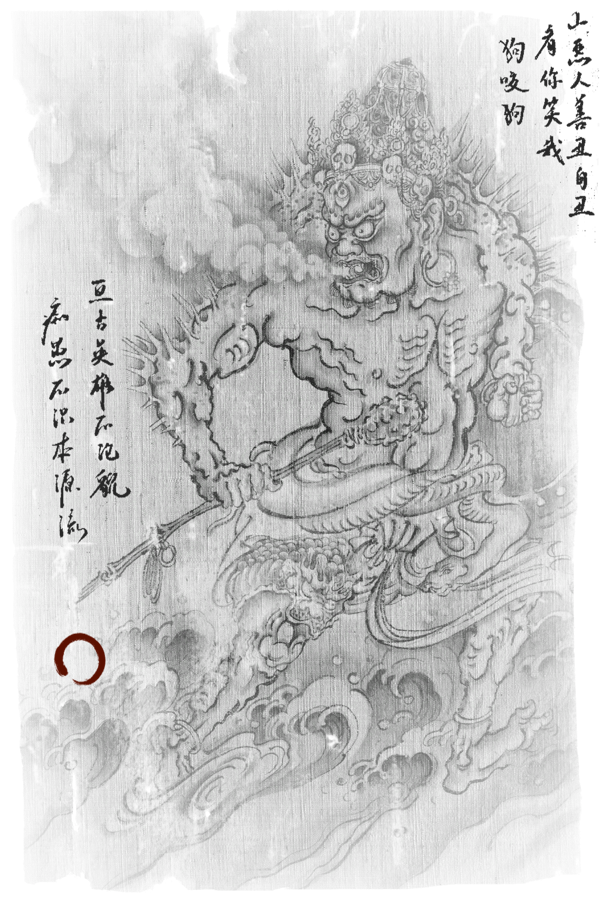 山恶人善丑自丑
看你笑我
狗咬狗
亘古英雄不记貌
痴愚不识本源流